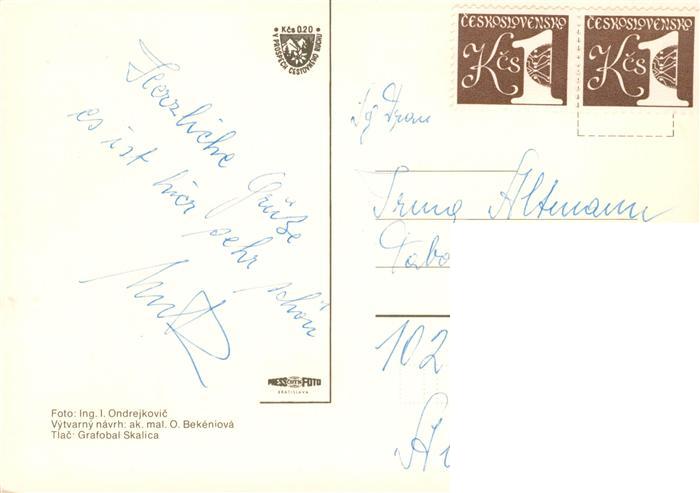 Kčs 0.20
V PROSPECH CESTOVNÉHO RUCHU
ČESKOSLOVENSKO
Kčs 1
ČESKOSLOVENSKO
Kčs 1
Herzliche Grüße
es ist hier sehr schön
Irma Altmann
102
PRESS FOTO
BRATISLAVA
Foto: Ing. I. Ondrejkovič
Výtvarný návrh: ak. mal. O. Bekéniová
Tlač: Grafobal Skalica